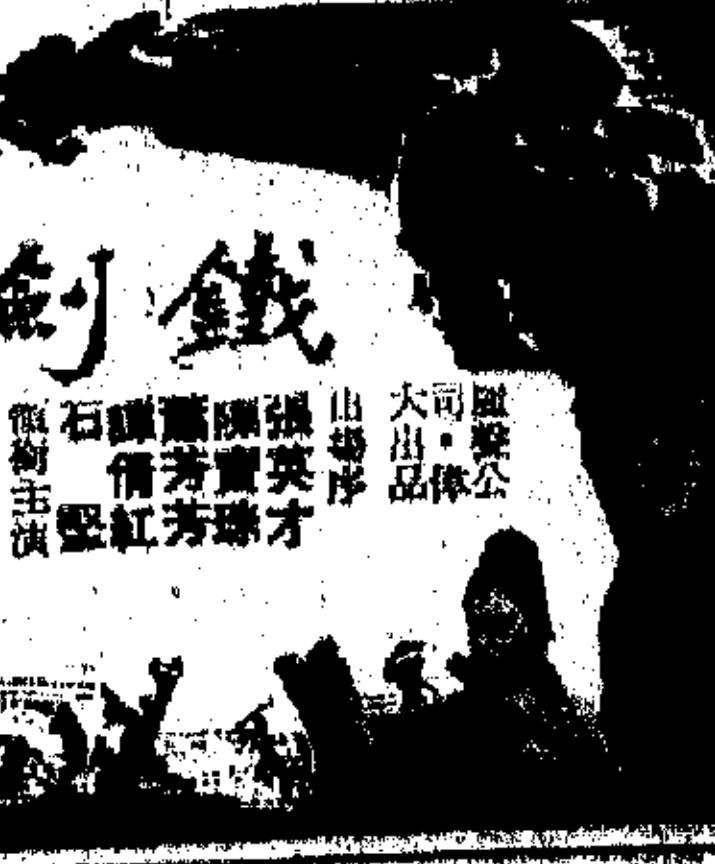 鐵劍
鳳聲公
司·偉
大出品
出場序
張英才
陳寶珠
蕭芳芳
譚倩紅
石堅
領銜主演